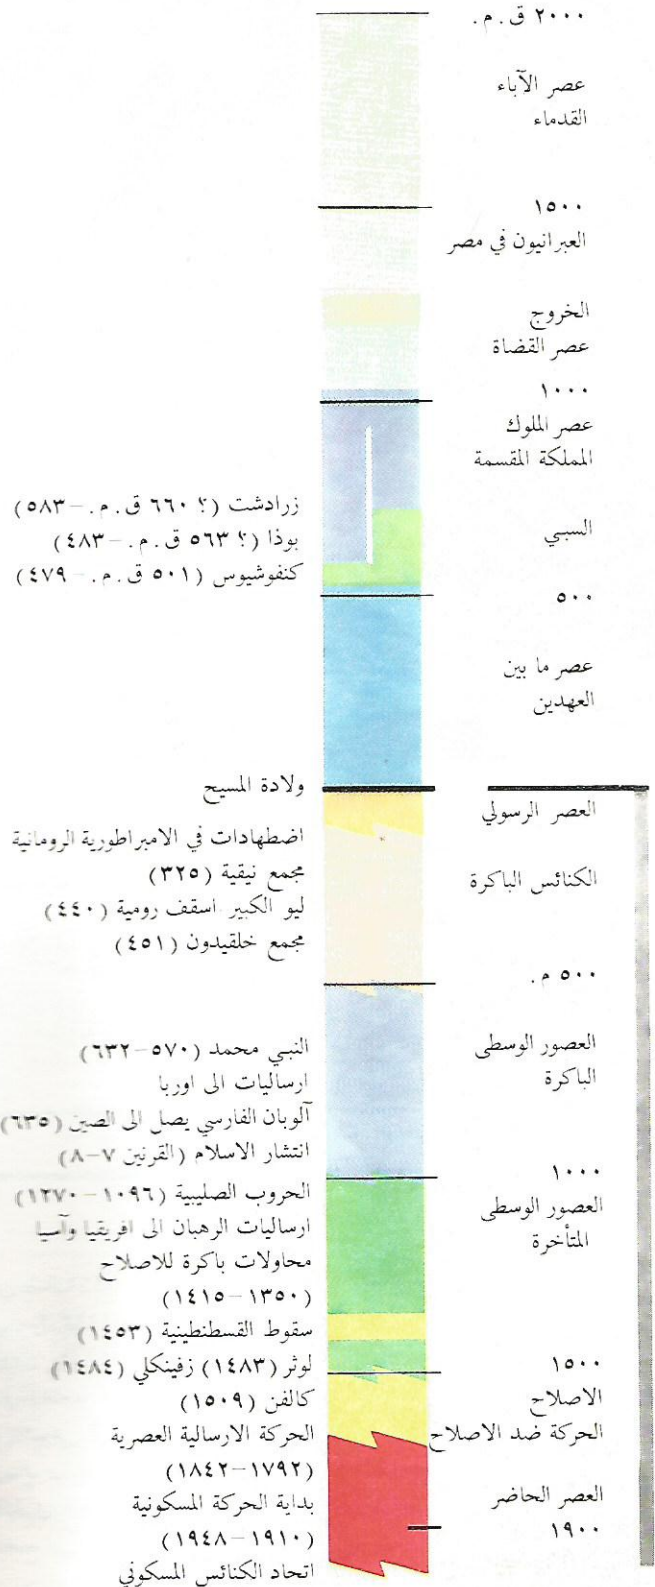 ٢٠٠٠ ق.م.
عصر الآباء
القدماء
١٥٠٠
العبرانيون في مصر
الخروج
عصر القضاة
١٠٠٠
عصر الملوك
المملكة المقسمة
السبي
٥٠٠
عصر ما بين
العهدين
العصر الرسولي
الكنائس الباكرة
٥٠٠ م.
العصور الوسطى
الباكرة
١٠٠٠
العصور الوسطى
المتأخرة
١٥٠٠
الاصلاح
الحركة ضد الاصلاح
العصر الحاضر
١٩٠٠
زرادشت (؟ ٦٦٠ ق.م.–٥٨٣)
بوذا (؟ ٥٦٣ ق.م.–٤٨٣)
كنفوشيوس (٥٠١ ق.م.–٤٧٩)
ولادة المسيح
اضطهادات في الامبراطورية الرومانية
مجمع نيقية (٣٢٥)
ليو الكبير اسقف رومية (٤٤٠)
مجمع خلقيدون (٤٥١)
النبي محمد (٥٧٠–٦٣٢)
ارساليات الى اوربا
آلوبان الفارسي يصل الى الصين (٦٣٥)
انتشار الاسلام (القرنين ٧–٨)
الحروب الصليبية (١٠٩٦–١٢٧٠)
ارساليات الرهبان الى افريقيا وآسيا
محاولات باكرة للاصلاح
(١٣٥٠–١٤١٥)
سقوط القسطنطينية (١٤٥٣)
لوثر (١٤٨٣) زفينكلي (١٤٨٤)
كالفن (١٥٠٩)
الحركة الارسالية العصرية
(١٧٩٢–١٨٤٢)
بداية الحركة المسكونية
(١٩١٠–١٩٤٨)
اتحاد الكنائس المسكوني